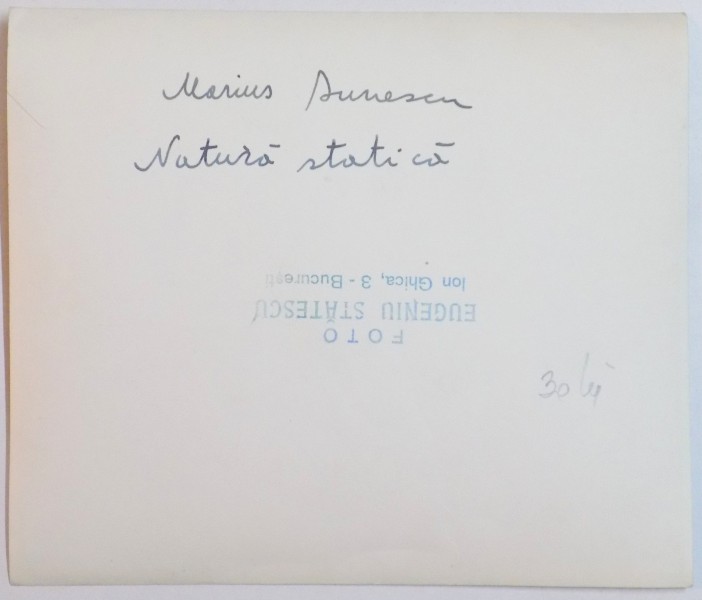 Marius Bunescu
Natură statică
FOTO
EUGENIU STĂTESCU
Ion Ghica, 3 - București
30 lei